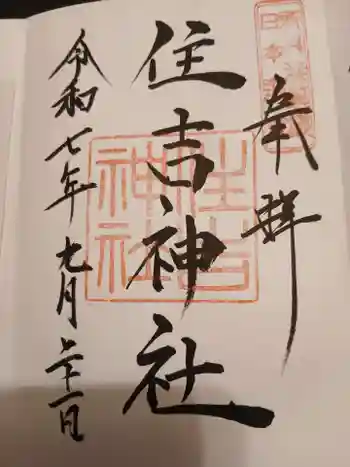 奉拝
住吉神社
住吉
神社
令和七年九月二十一日